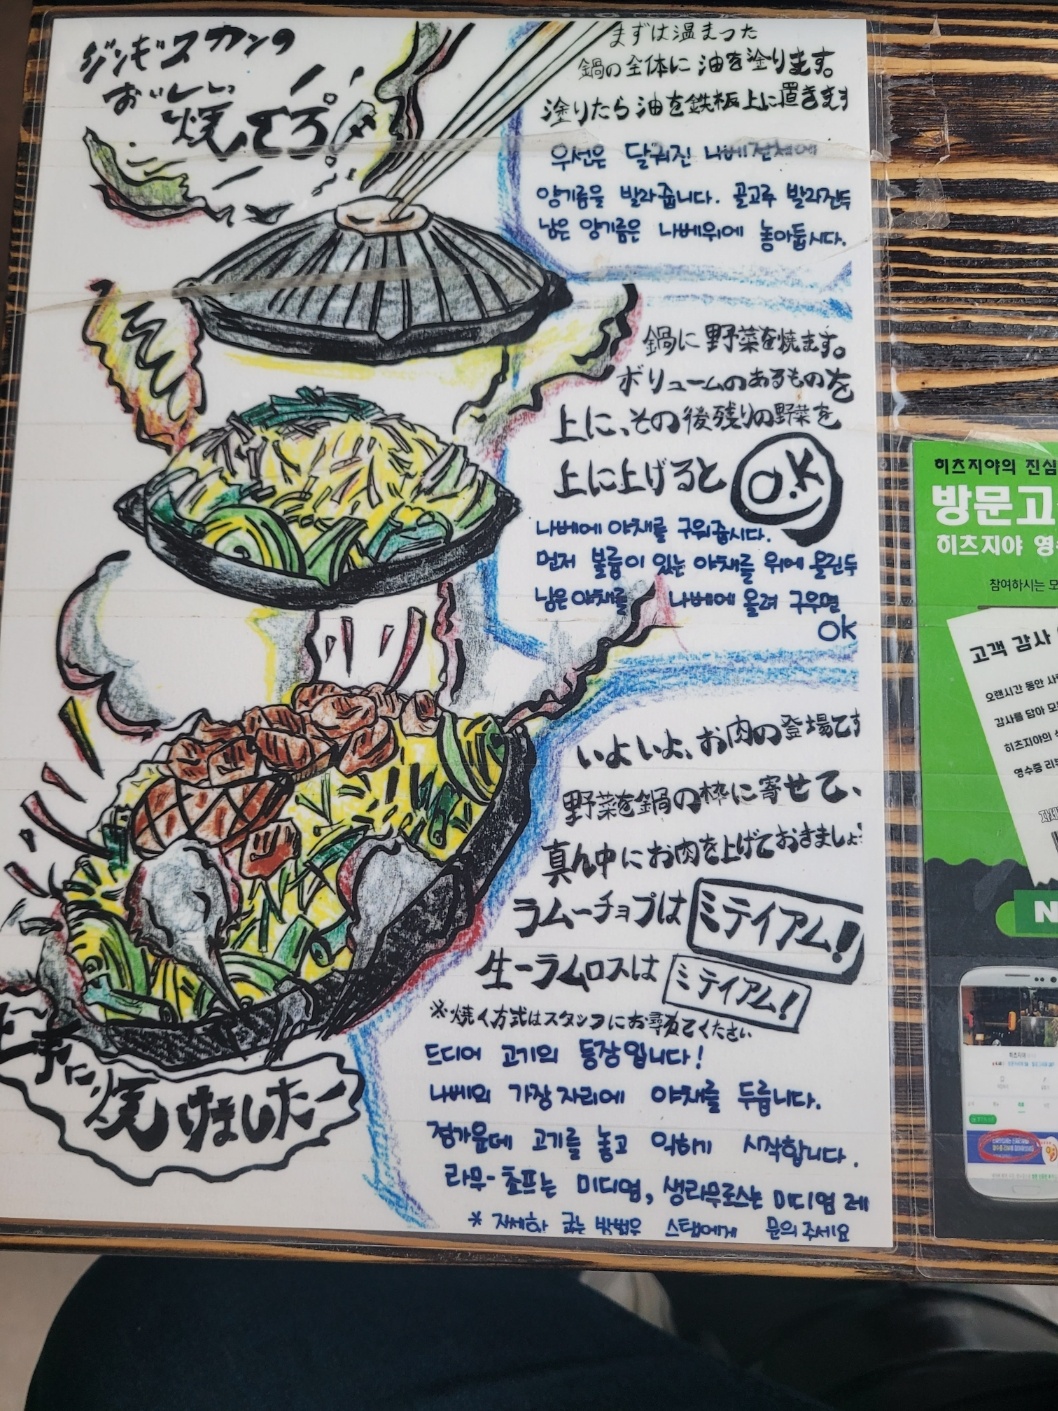 ジンギスカンの
おいしい
焼き方!
まずは温まった
鍋の全体に油を塗ります。
塗りたら油を鉄板上に置きます
우선은 달궈진 나베전체에
양기름을 발라줍니다. 골고루 발라진두
남은 양기름은 나베위에 놓아둡시다.
鍋に野菜を焼ます。
ボリュームのあるものを
上に、その後残りの野菜を
上に上げると
O.K
나베에 야채를 구워줍시다.
먼저 볼륨이 있는 야채를 위에 올린두
남은야채를 나베에 올려 구우면
OK
いよいよ、お肉の登場です
野菜を鍋の枠に寄せて、
真ん中にお肉を上げておきましょ
ラムーチョプは ミテイアム!
生ーラムロスは ミテイアム!
※焼く方式はスタッフにお尋ねてください
드디어 고기의 등장입니다!
나베의 가장자리에 야채를 두릅니다.
정가운데 고기를 놓고 익히기 시작합니다.
라무-초프는 미디엄, 생라무로스는 미디엄 레
* 자세한 굽는 방법은 스탭에게 문의주세요
上手に
焼けました
히츠지야의 진심
방문고
히츠지야 영
참여하시는 모
고객 감사
오랜시간 동안 사
감사를 담아 모
히츠지야의 성
영수증 리
N